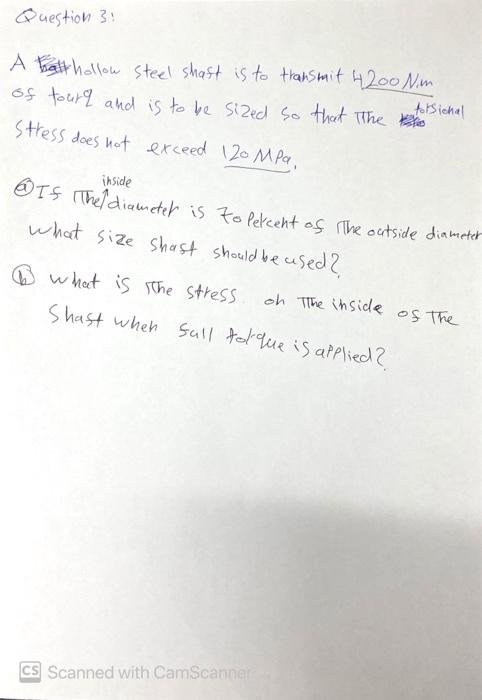 Question 3:
A hollow steel shaft is to transmit 4200 N.m
of tourq and is to be sized so that The torsional
stress does not exceed 120 MPa.
ⓐ If The inside diameter is 70 Percent of The outside diameter
what size shaft should be used?
ⓑ what is The stress on The inside of The
Shaft when full torque is applied?
CS Scanned with CamScanner